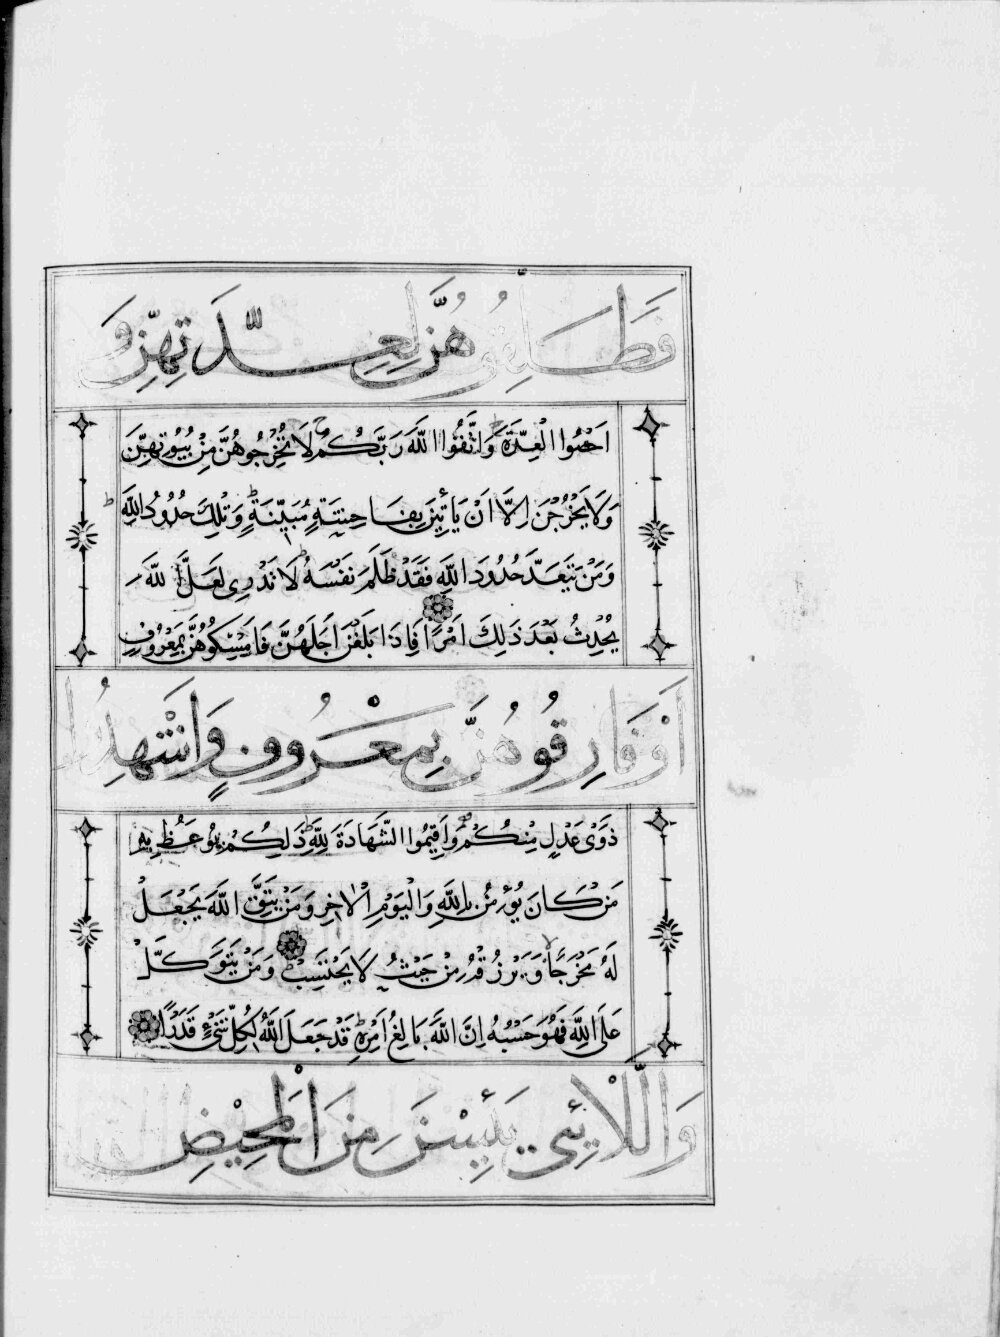 فَطَلِّقُوهُنَّ لِعِدَّتِهِنَّ وَ
اَحْصُوا الْعِدَّةَ وَاتَّقُوا اللَّهَ رَبَّكُمْ لَا تُخْرِجُوهُنَّ مِنْ بُيُوتِهِنَّ
وَلَا يَخْرُجْنَ اِلَّا اَنْ يَأْتِينَ بِفَاحِشَةٍ مُبَيِّنَةٍ وَتِلْكَ حُدُودُ اللَّهِ
وَمَنْ يَتَعَدَّ حُدُودَ اللَّهِ فَقَدْ ظَلَمَ نَفْسَهُ لَا تَدْرِى لَعَلَّ اللَّهَ
يُحْدِثُ بَعْدَ ذَلِكَ اَمْرًا فَاِذَا بَلَغْنَ اَجَلَهُنَّ فَاَمْسِكُوهُنَّ بِمَعْرُوفٍ
اَوْ فَارِقُوهُنَّ بِمَعْرُوفٍ وَاَشْهِدُوا
ذَوَىْ عَدْلٍ مِنْكُمْ وَاَقِيمُوا الشَّهَادَةَ لِلَّهِ ذَلِكُمْ يُوعَظُ بِهِ
مَنْ كَانَ يُؤْمِنُ بِاللَّهِ وَالْيَوْمِ الْاٰخِرِ وَمَنْ يَتَّقِ اللَّهَ يَجْعَلْ
لَهُ مَخْرَجًا وَيَرْزُقْهُ مِنْ حَيْثُ لَا يَحْتَسِبُ وَمَنْ يَتَوَكَّلْ
عَلَى اللَّهِ فَهُوَ حَسْبُهُ اِنَّ اللَّهَ بَالِغُ اَمْرِهِ قَدْ جَعَلَ اللَّهُ لِكُلِّ شَىْءٍ قَدْرًا
وَاللَّائِي يَئِسْنَ مِنَ الْمَحِيْضِ